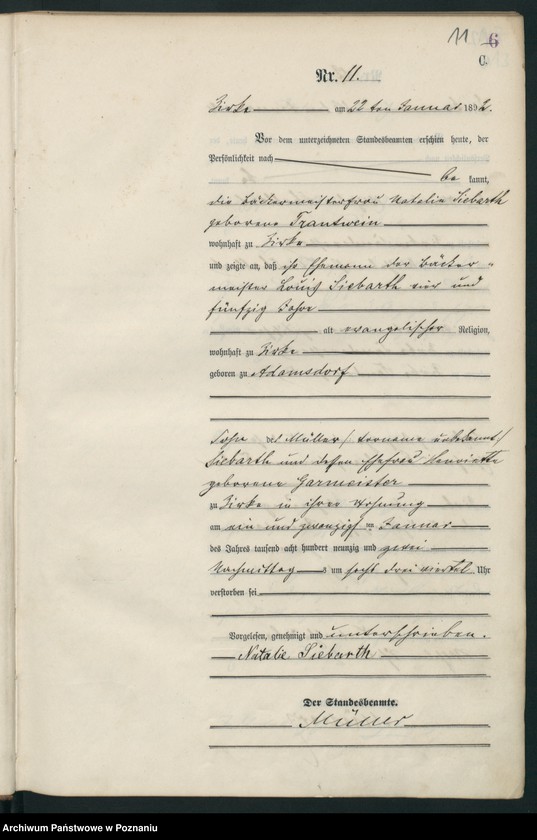 11 6
C.
Nr. 11.
Zirke am 22ten Januar 1892.
Vor dem unterzeichneten Standesbeamten erschien heute, der
Persönlichkeit nach
be kannt,
die Bäckermeisterfrau Natalie Siebarth
geborene Trautwein
wohnhaft zu Zirke
und zeigte an, daß ihr Ehemann der Bäcker-
meister Louis Siebarth vier und
fünfzig Jahre
alt evangelischer Religion,
wohnhaft zu Zirke
geboren zu Adamsdorf
Sohn des Müller / Vorname unbekannt /
Siebarth und dessen Ehefrau Henriette
geborene Garmeister
zu Zirke in ihrer Wohnung
am ein und zwanzigsten Januar
des Jahres tausend acht hundert neunzig und zwei
Nachmittags um sechs drei viertel Uhr
verstorben sei
Vorgelesen, genehmigt und unterschrieben.
Natalie Siebarth
Der Standesbeamte.
Müller
Archiwum Państwowe w Poznaniu